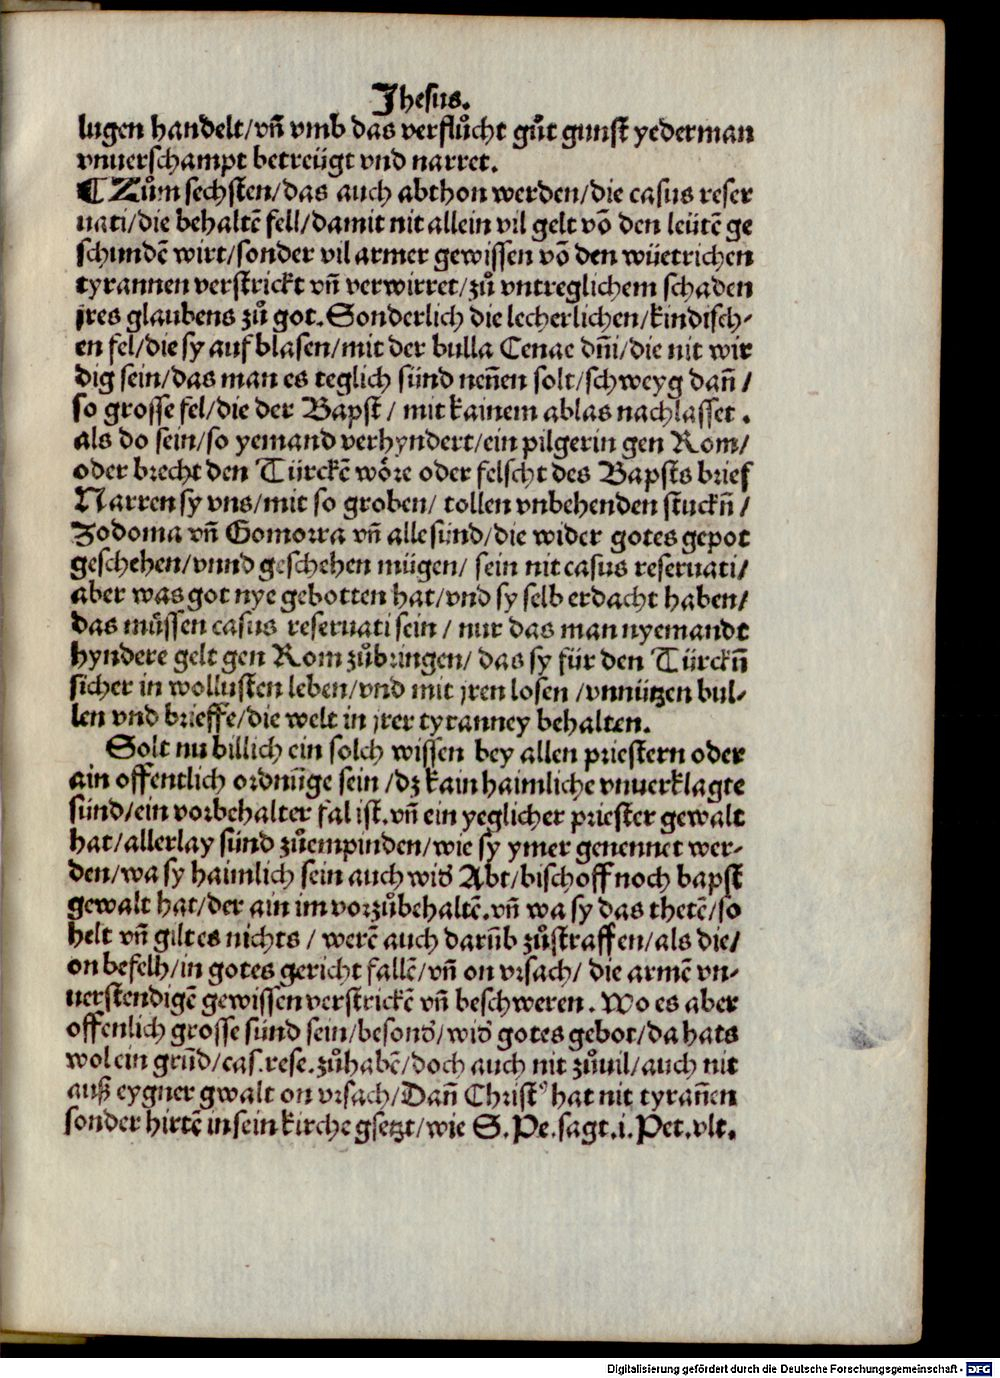 Jhesus.
lugen handelt/vñ vmb das verflůcht gůt gunst yederman
vnuerschampt betreügt vnd narret.
¶ Zům sechsten/das auch abthon werden/die casus reser
uati/die behaltē fell/damit nit allein vil gelt vō den leütē ge
schundē wirt/sonder vil armer gewissen vō den wüetrichen
tyrannen verstrickt vñ verwirret/zů vntreglichem schaden
jres glaubens zů got. Sonderlich die lecherlichen/kindisch-
en fel/die sy auf blasen/mit der bulla Cenae dñi/die nit wir
dig sein/das man es teglich sünd neñen solt/schweyg dañ/
so grosse fel/die der Bapst/ mit kainem ablas nachlasset.
als do sein/so yemand verhyndert/ein pilgerin gen Rom/
oder brecht den Türckē wöre oder felscht des Bapsts brief
Narren sy vns/mit so groben/ tollen vnbehenden stuckñ/
Zodoma vñ Gomorra vñ alle sünd/die wider gotes gepot
geschehen/vnnd geschehen mügen/ sein nit casus reseruati/
aber was got nye gebotten hat/vnd sy selb erdacht haben/
das müssen casus reseruati sein/ nur das man nyemandt
hyndere gelt gen Rom zůbringen/ das sy für den Türckñ
sicher in wollusten leben/vnd mit jren losen /vnnützen bul-
len vnd brieffe/die welt in jrer tyranney behalten.
Solt nu billich ein solch wissen bey allen priestern oder
ain offentlich ordnūge sein /dz kain haimliche vnuerklagte
sünd/ein vorbehalter fal ist.vñ ein yeglicher priester gewalt
hat/allerlay sünd zůempinden/wie sy ymer genennet wer-
den/wa sy haimlich sein auch wid̕ Abt/bischoff noch bapst
gewalt hat/der ain im vorzůbehaltē.vñ wa sy das thetē/so
helt vñ gilt es nichts/ werē auch darūb zůstraffen/als die/
on befelh/in gotes gericht fallē/vñ on vrsach/ die armē vn-
uerstendigē gewissen verstrickē vñ beschweren. Wo es aber
offenlich grosse sünd sein/besond̕/wid̕ gotes gebot/da hats
wol ein grūd/cas.rese.zůhabē/doch auch nit zůuil/auch nit
auß eygner gwalt on vrsach/Dañ Christꝰ hat nit tyrañen
sonder hirtē in sein kirche gsetzt/wie S.Pe.sagt.i.Pet.vlt.
Digitalisierung gefördert durch die Deutsche Forschungsgemeinschaft - DFG